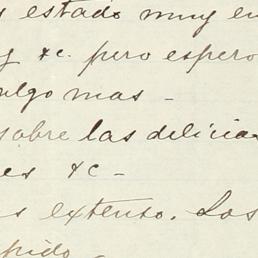 estado muy en
y &c. pero espero
algo mas -
sobre las delicias
es &c -
s extenso. Los
pido -